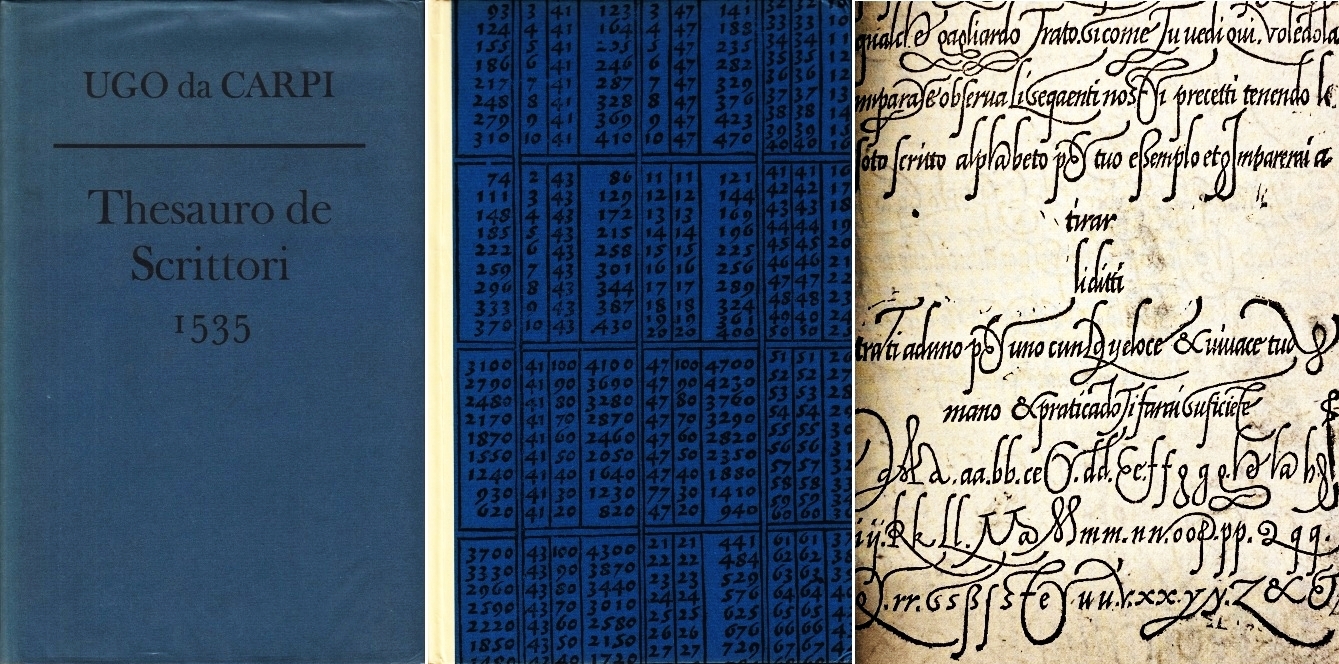 UGO da CARPI
Thesauro de
Scrittori
1535
93 3 41 123 3 47 141
124 4 41 164 4 47 188
155 5 41 5 47 235
186 6 41 246 6 47 282
217 7 41 287 7 47 329
248 8 41 328 8 47 376
279 9 41 369 9 47 423
310 10 41 410 10 47 470
74 2 43 86 11 11 121 41 41
111 3 43 129 12 12 144 42 42
148 4 43 172 13 13 169 43 43
185 5 43 215 14 14 196 44 44
222 6 43 258 15 15 225 45 45
259 7 43 301 16 16 256 46 46
296 8 43 344 17 17 289 47 47
333 9 43 387 18 18 324 48 48
19 19 361 49 49
370 10 43 430 20 20 400 50 50
3100 41 100 4100 47 100 4700 51 51
2790 41 90 3690 47 90 4230 52 52
2480 41 80 3280 47 80 3760 53 53
2170 41 70 2870 47 70 3290 54 54
1870 41 60 2460 47 60 2820 55 55
1550 41 50 2050 47 50 2350 56 56
1240 41 40 1640 47 40 1880 57 57
930 41 30 1230 77 30 1410 58 58
59 59
620 41 20 820 47 20 940 60 60
3700 43 100 4300 21 21 441 61 61
3330 43 90 3870 22 22 484 62 62
2960 43 80 3440 23 23 529 63 63
2590 43 70 3010 24 24 576 64 64
2220 43 60 2580 25 25 625 65 65
1850 43 50 2150 26 26 676 66 66
1480 40 1720 27 27 729 67 67
gagliardo Trato. Si come Tu uedi qui. voledola
& obserua Li seqaenti nostri precetti tenendo le
scritto alphabeto p tuo essemplo et Imparerai a
tirar
li ditti
trati ad uno p uno cum veloce & viuace tua
mano & praticado Ti farai suficiete
A a. aa. bb. cc d. dd. e e f f g g g. h h
ij. k k l l. N a M mm. nn. oo p. pp. q qq.
rr. s s ß ſ s t uu v. xx. y y. Z &